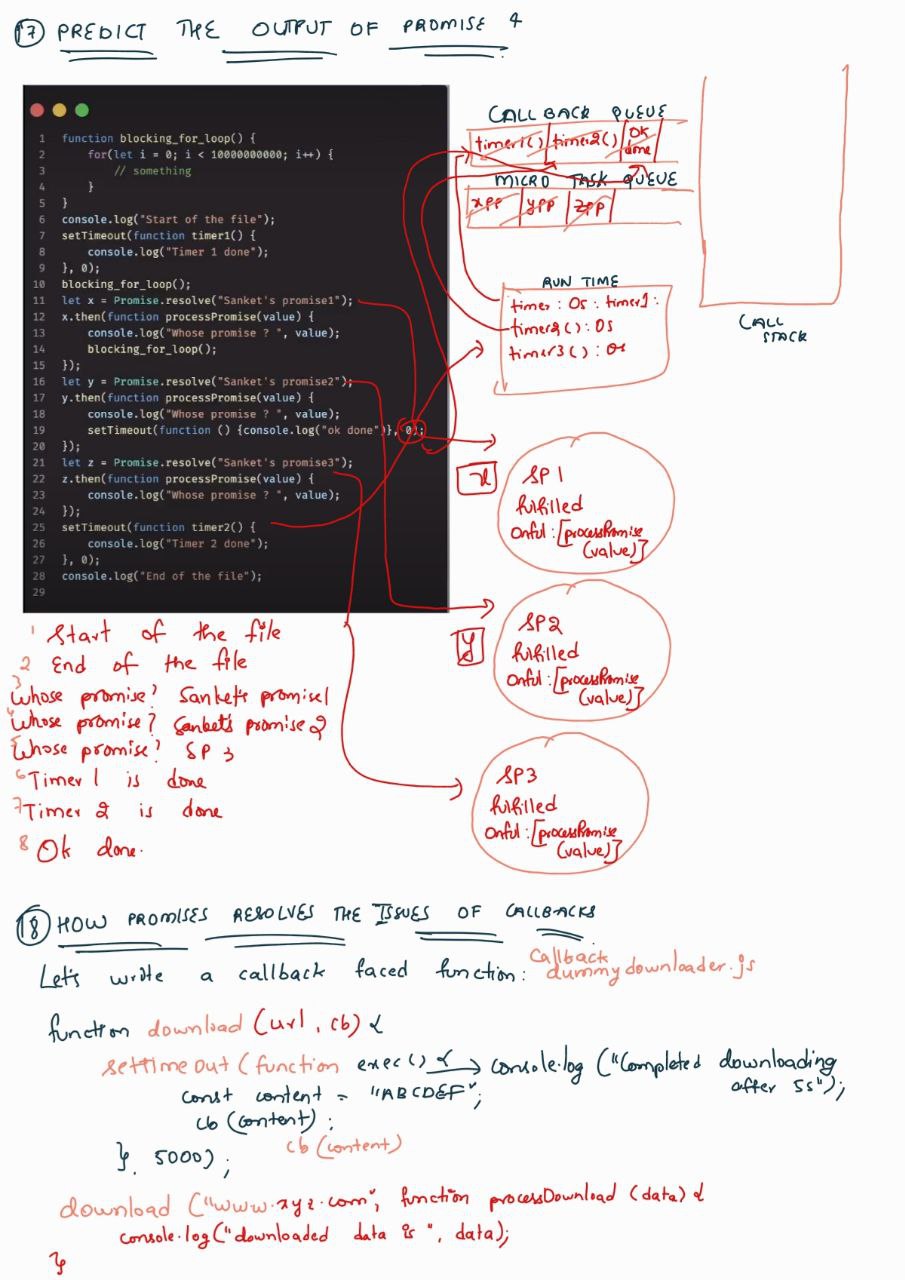 17 PREDICT THE OUTPUT OF PROMISE 4
1 function blocking_for_loop() {
2 for(let i = 0; i < 10000000000; i++) {
3 // something
4 }
5 }
6 console.log("Start of the file");
7 setTimeout(function timer1() {
8 console.log("Timer 1 done");
9 }, 0);
10 blocking_for_loop();
11 let x = Promise.resolve("Sanket's promise1");
12 x.then(function processPromise(value) {
13 console.log("Whose promise ? ", value);
14 blocking_for_loop();
15 });
16 let y = Promise.resolve("Sanket's promise2");
17 y.then(function processPromise(value) {
18 console.log("Whose promise ? ", value);
19 setTimeout(function () {console.log("ok done")}, 0);
20 });
21 let z = Promise.resolve("Sanket's promise3");
22 z.then(function processPromise(value) {
23 console.log("Whose promise ? ", value);
24 });
25 setTimeout(function timer2() {
26 console.log("Timer 2 done");
27 }, 0);
28 console.log("End of the file");
29
CALL BACK QUEUE
timer1() timer2() OK done
MICRO TASK QUEUE
xpp ypp zpp
RUN TIME
timer : 0s : timer1 :
timer2() : 0s
timer3() : 0s
CALL
STACK
x
SP1
fulfilled
Onful : [processPromise
(value)]
y
SP2
fulfilled
Onful : [processPromise
(value)]
SP3
fulfilled
Onful : [processPromise
(value)]
1 Start of the file
2 End of the file
3 Whose promise? Sanket's promise1
4 Whose promise? Sanket's promise 2
5 Whose promise? SP 3
6 Timer 1 is done
7 Timer 2 is done
8 Ok done.
18 HOW PROMISES RESOLVES THE ISSUES OF CALLBACKS
Let's write a callback faced function: Callback
dummydownloader.js
function download (url, cb) {
settimeout (function exec() { console.log ("Completed downloading
after 5s");
const content = "ABCDEF";
cb (content);
cb (content)
}, 5000);
download ("www.xyz.com", function processDownload (data) {
console.log("downloaded data is ", data);
}